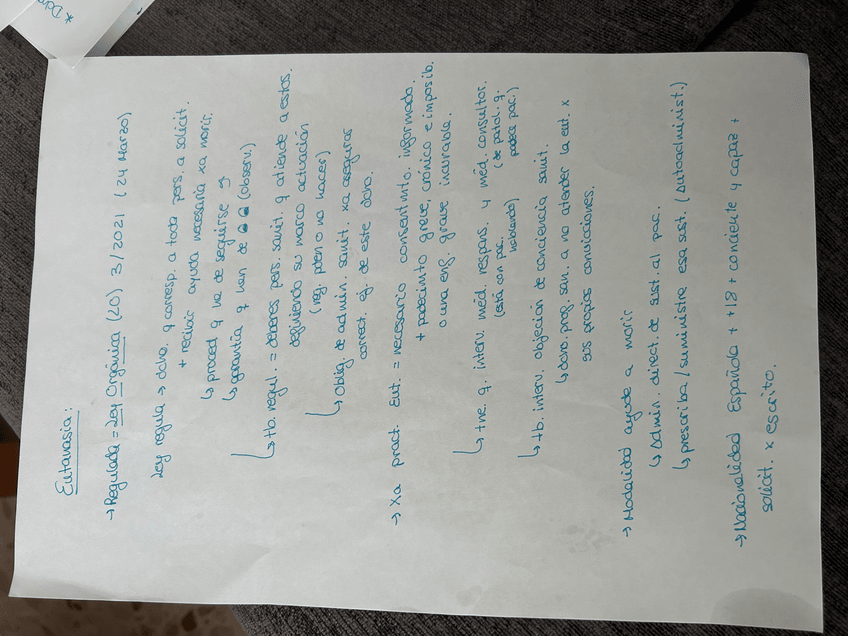 Eutanasia:
→ Regulada = Ley Orgánica (LO) 3/2021 (24 Marzo)
Ley regula → dcho. q corresp. a toda pers. a solicit.
+ recibir ayuda necesaria xa morir.
↳ proced q ha de seguirse →
↳ garantía q han de (observ.)
↳ tb. regul. = deberes pers. sanit. q atiende a estos.
definiendo su marco actuación
(neg. pden o no hacer)
↳ Oblig. de admin. sanit. xa asegurar
correct. ej. de este dcho.
→ Xa pract. Eut. = necesario consentimto. informado.
+ padecimto grave, crónico e imposib.
o una enf. grave incurable.
↳ tne. q. interv. méd. respons. y méd. consultor.
(está con pac. (de patol. q.
hablando) padece pac.)
↳ tb. interv. objeción de conciencia sanit.
↳ dcho. prof. san. a no atender la eut. x
sus propias convicciones.
→ Modalidad ayude a morir
↳ admin. direct. de sust. al pac.
↳ prescriba/suministre esa sust. (Autoadminist.)
→ Nacionalidad Española + +18 + conciente y capaz +
solicit. x escrito.
* Dom